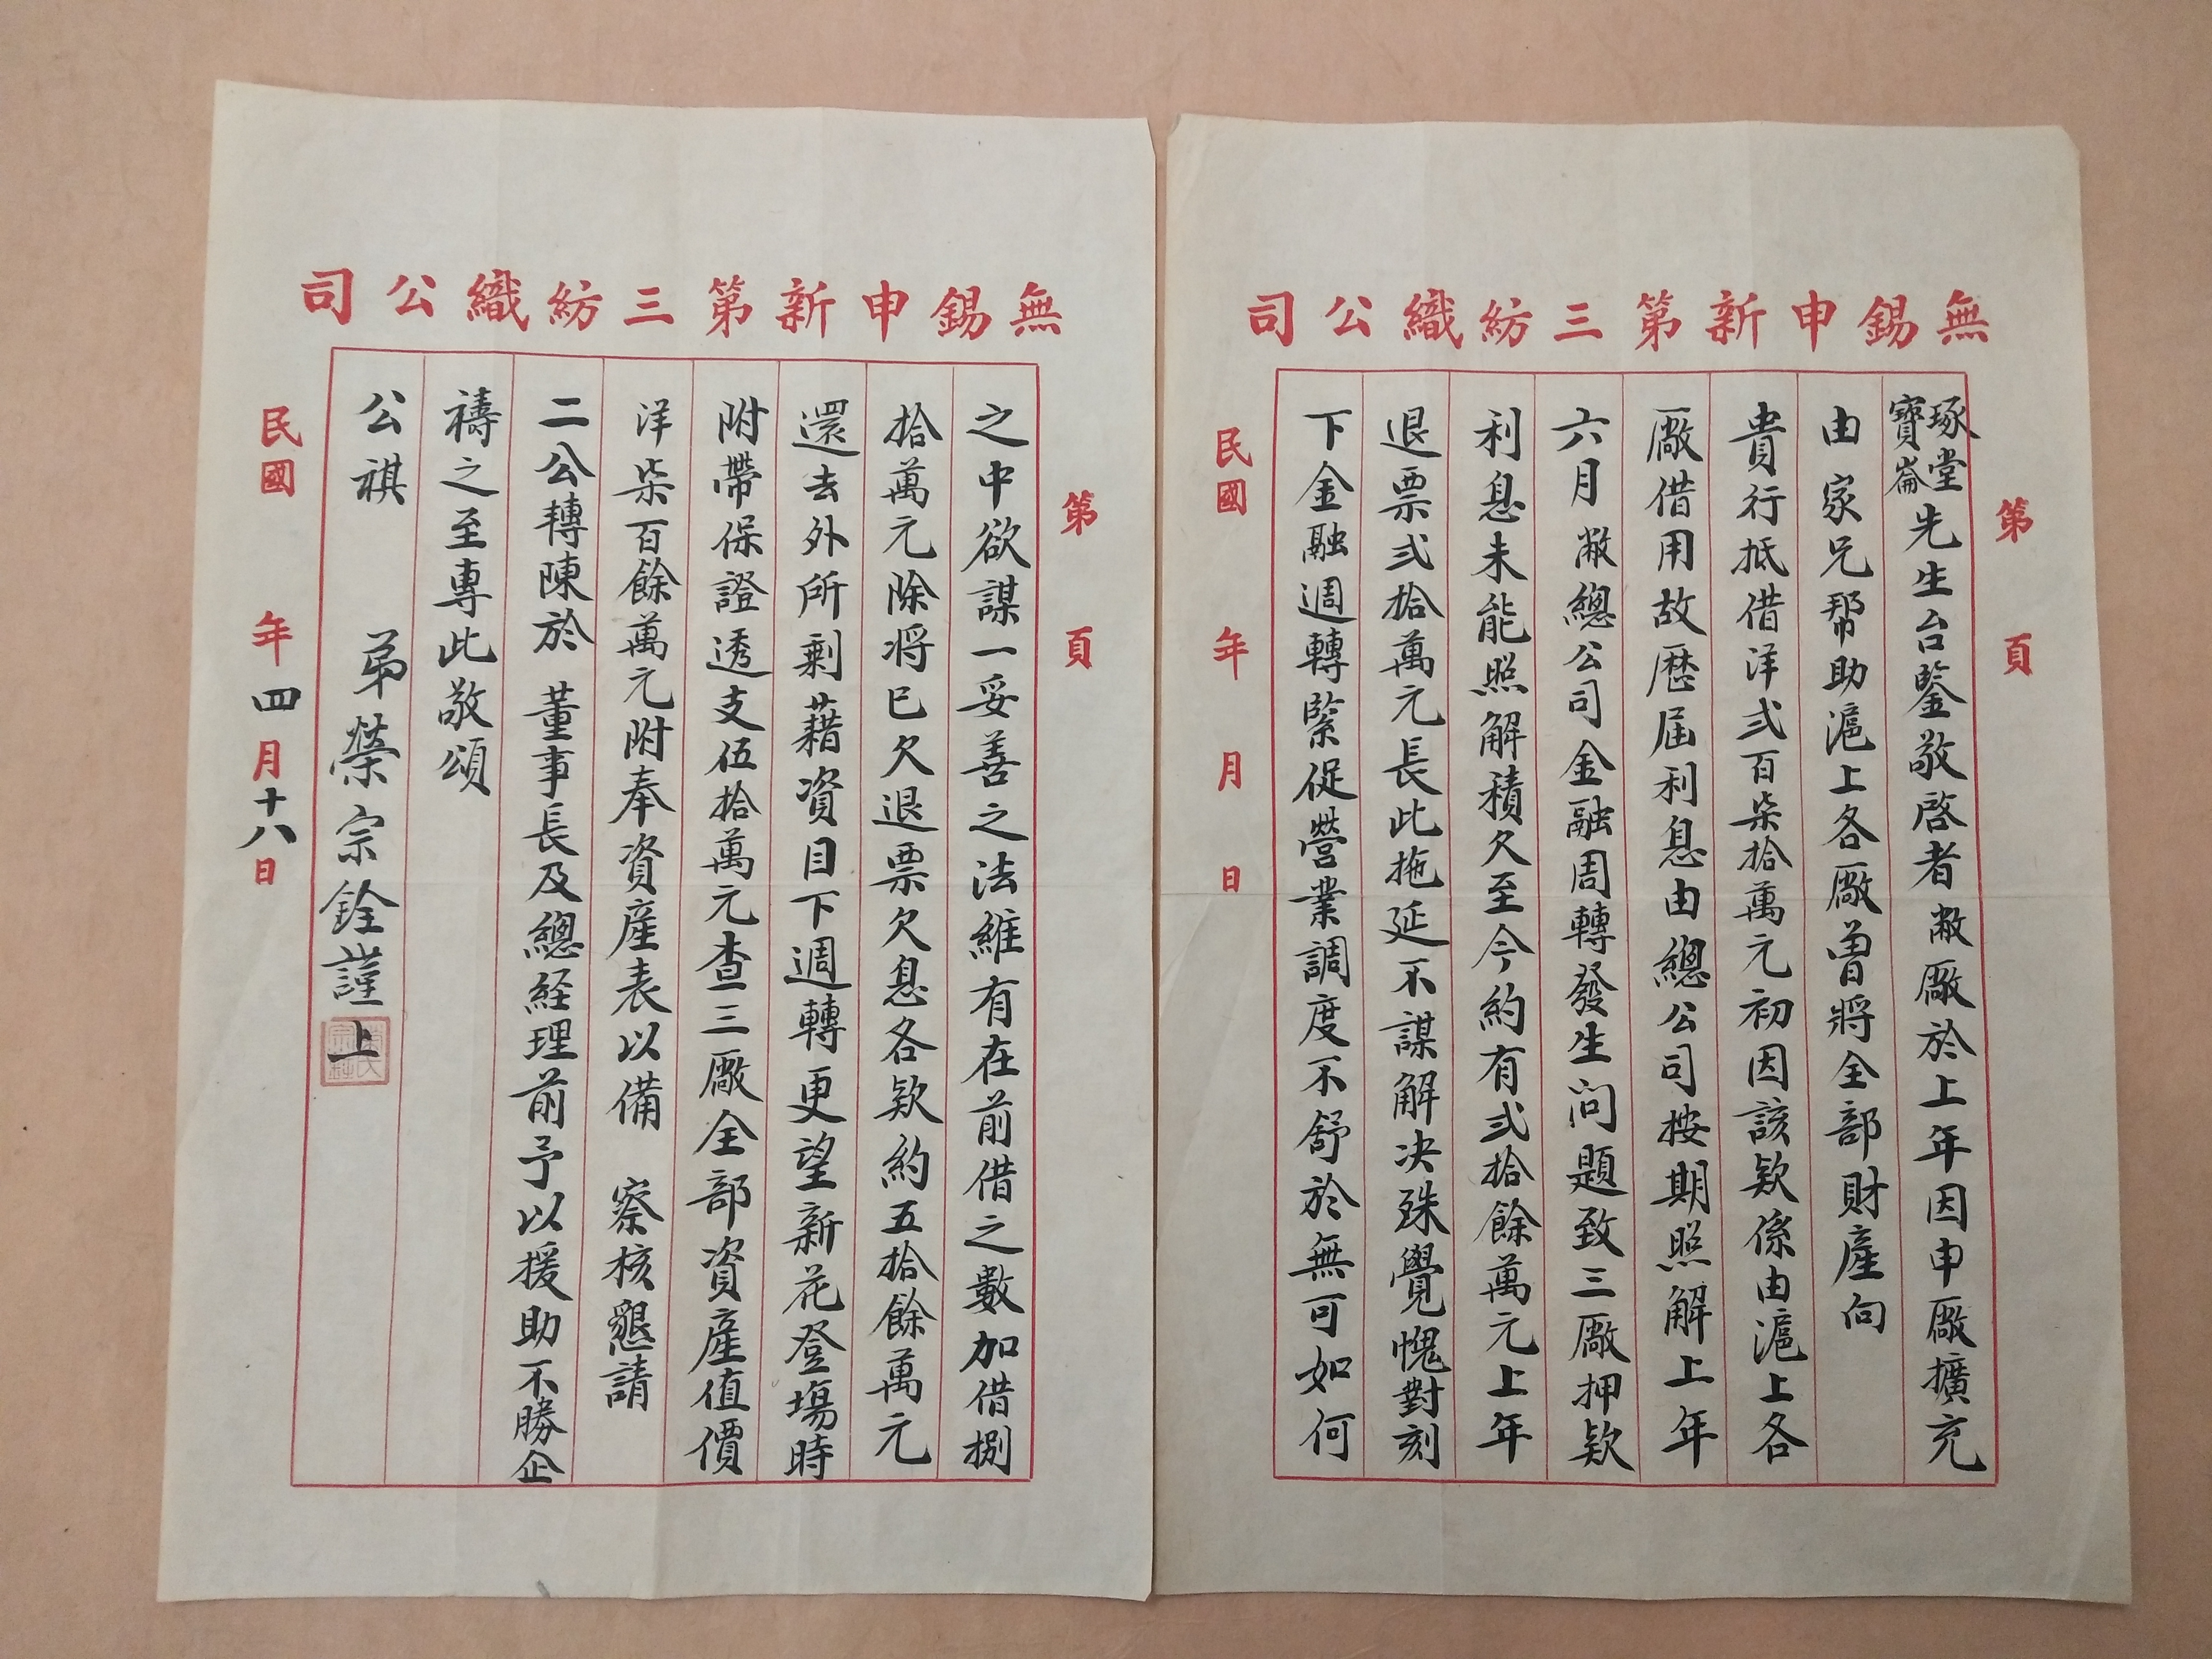 無錫申新第三紡織公司
第 頁
琢堂
寶崙
先生台鑒敬啓者敝廠於上年因申廠擴充
由家兄幇助滬上各廠曾將全部財產向
貴行抵借洋弍百柒拾萬元初因該欵係由滬上各
廠借用故歷屆利息由總公司按期照解上年
六月敝總公司金融周轉發生问題致三廠押欵
利息未能照解積欠至今約有弍拾餘萬元上年
退票弍拾萬元長此拖延不謀解决殊覺愧對刻
下金融週轉緊促營業調度不舒於無可如何
民國 年 月 日
無錫申新第三紡織公司
第 頁
之中欲謀一妥善之法維有在前借之數加借捌
拾萬元除将已欠退票欠息各欵約五拾餘萬元
還去外所剩藉資目下週轉更望新花登場時
附帶保證透支伍拾萬元查三廠全部資產值價
洋柒百餘萬元附奉資產表以備 察核懇請
二公轉陳於 董事長及總経理前予以援助不勝企
禱之至專此敬頌
公祺
弟榮宗銓謹上
民國 年四月十八日